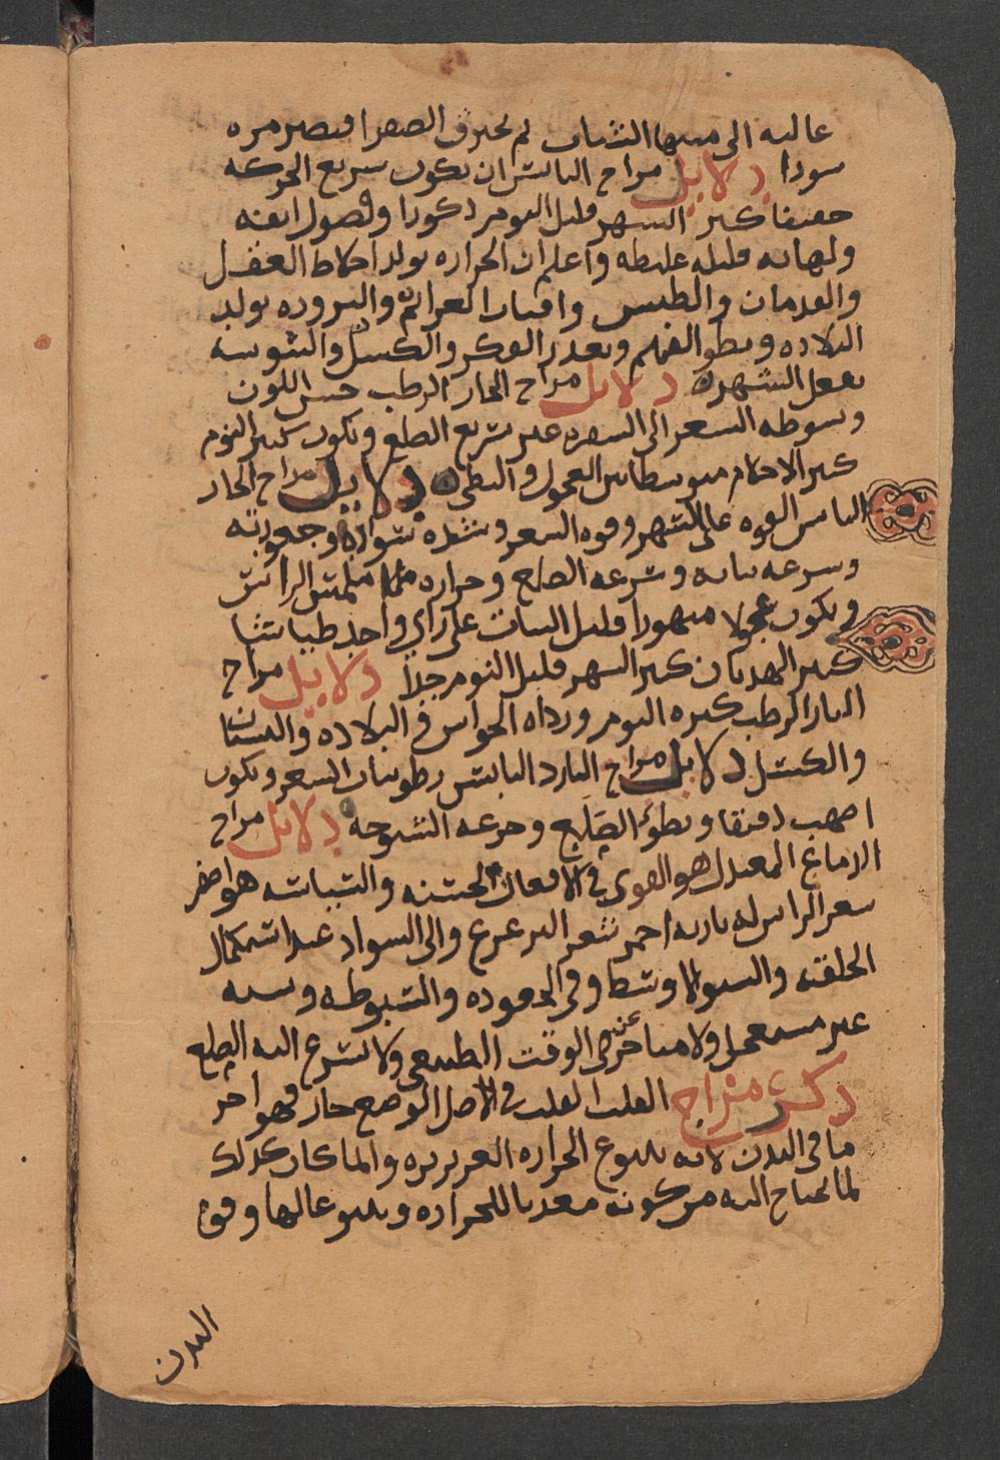 عاليه الى منتهى الشباب ثم تحترق الصفرا فتصير مره
سودا دلايل مزاج اليابس ان يكون سريع الحركه
خفيفا كثير السهر قليل النوم ذكورا وفضول انفه
ولهاته قليله غليظه واعلم ان الحراره تولد اختلاط العقل
والهذيان والطيش وافتيات العزائم والبروده تولد
البلاده وبطو الفهم وتعذر الفكر والكسل واليبوسه
تفعل السهر دلايل مزاج الحار الرطب حسن اللون
وسوطه الشعر الى الشقره غير سريع الصلع ويكون كثير النوم
كثير الاحلام متوسطا بين العجول والبطى دلايل مزاج الحار
اليابس القوه على السهر وقوه الشعر وشده سواده وجعودته
وسرعه نباته وسرعه الصلع وحراره ملمس الراس
ويكون عجولا متهورا قليل الثبات على راي واحد طياشا
كثير الهذيان كثير السهر قليل النوم جدا دلايل مزاج
البارد الرطب كثره النوم ورداه الحواس في البلاده والنسيان
والكسل دلايل مزاج البارد اليابس بطو نبات الشعر ويكون
اصهب دقيقا وبطؤ الصلع وسرعه الشيوخه دلايل مزاج
الدماغ المعتدل هو القوى في الافعال الحسيه والسياسيه هو اصفر
شعر الراس له ناريه احمر شعر الترعرع والى السواد عند استكمال
الخلقه والنبو الاوسط وفي الجعوده والسبوطه وسبه
غير مستعجل ولا متاخر عن الوقت الطبيعى ولا تسرع اليه الصلع
ذكر مزاج القلب القلب في الاصل الوضع حار فهو احر
ما في البدن لانه ينبوع الحراره الغريزيه وانما كان كذلك
لما يحتاج اليه من كونه معدنا للحراره وينبوعا لها وقوه
البدن